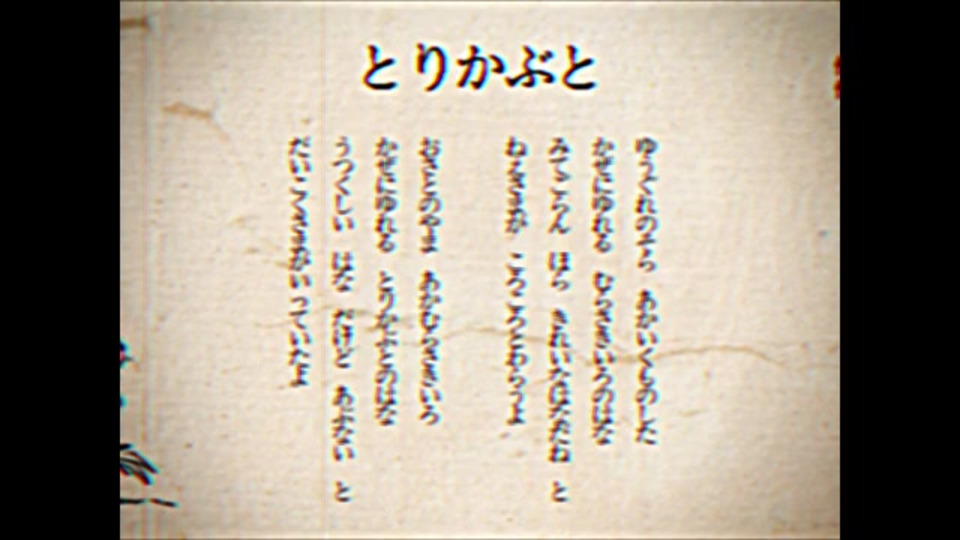 とりかぶと
ゆうぐれのそら あかいくものした
かぜにゆれる むらさきいろのはな
みてごらん ほら きれいなはなだね と
ねえさまが ころころとわらうよ
おさとのやま あかむらさきいろ
かぜにゆれる とりかぶとのはな
うつくしい はな だけど あぶない と
だいこくさまがいっていたよ